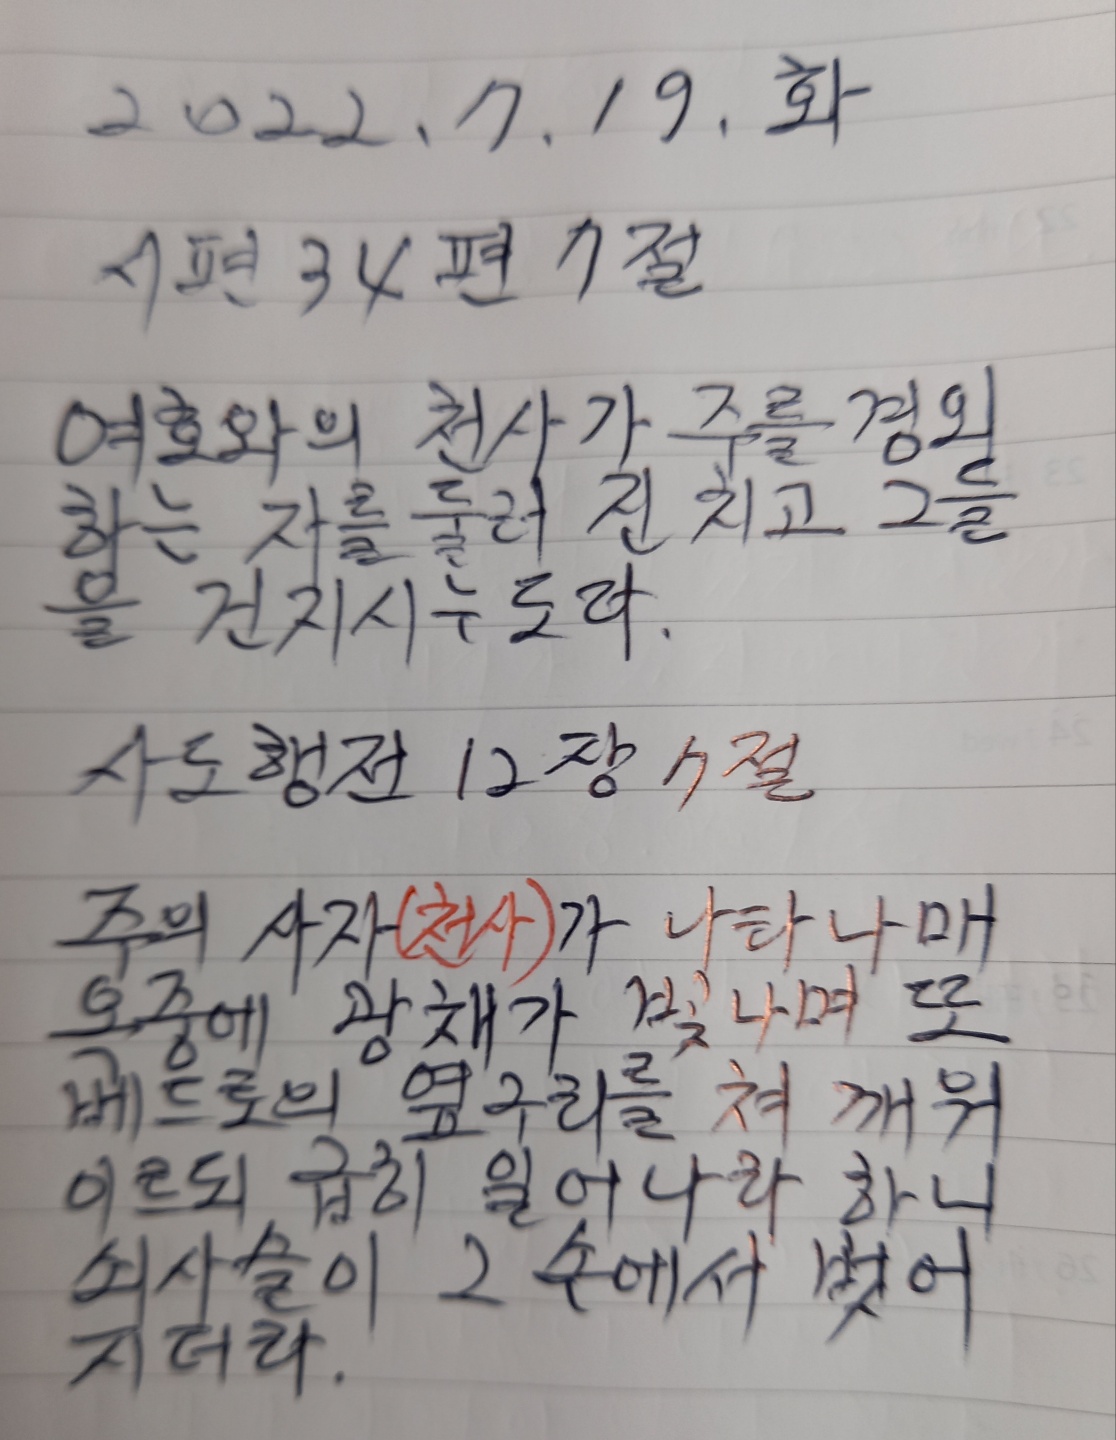 2022. 7. 19. 화
시편 34편 7절
여호와의 천사가 주를 경외
함는 자를 둘러 진 치고 그들
을 건지시누도라.
사도행전 12장 7절
주의 사자(천사)가 나타나매
옥중에 광채가 빛나며 또
베드로의 옆구리를 쳐 깨워
이르되 급히 일어나라 하니
쇠사슬이 2 손에서 벗어
지더라.